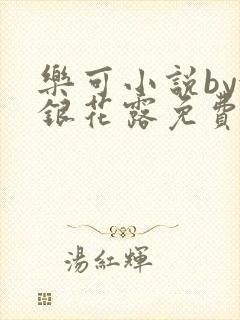 樂可小説by
銀花露免費
湯紅輝